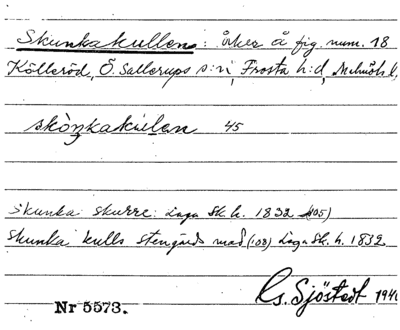 Skunkakullen: åker å fig. num. 18
Kölleröd, Ö. Sallerups s:n, Frosta h:d, Malmöh. l.
skòŋkakulan 45
skunka skurre: Laga Sk. h. 1832 (105)
skunka kulls stengärds mad (108) Laga Sk. h. 1832
Nr 5573.
G. Sjöstedt 194